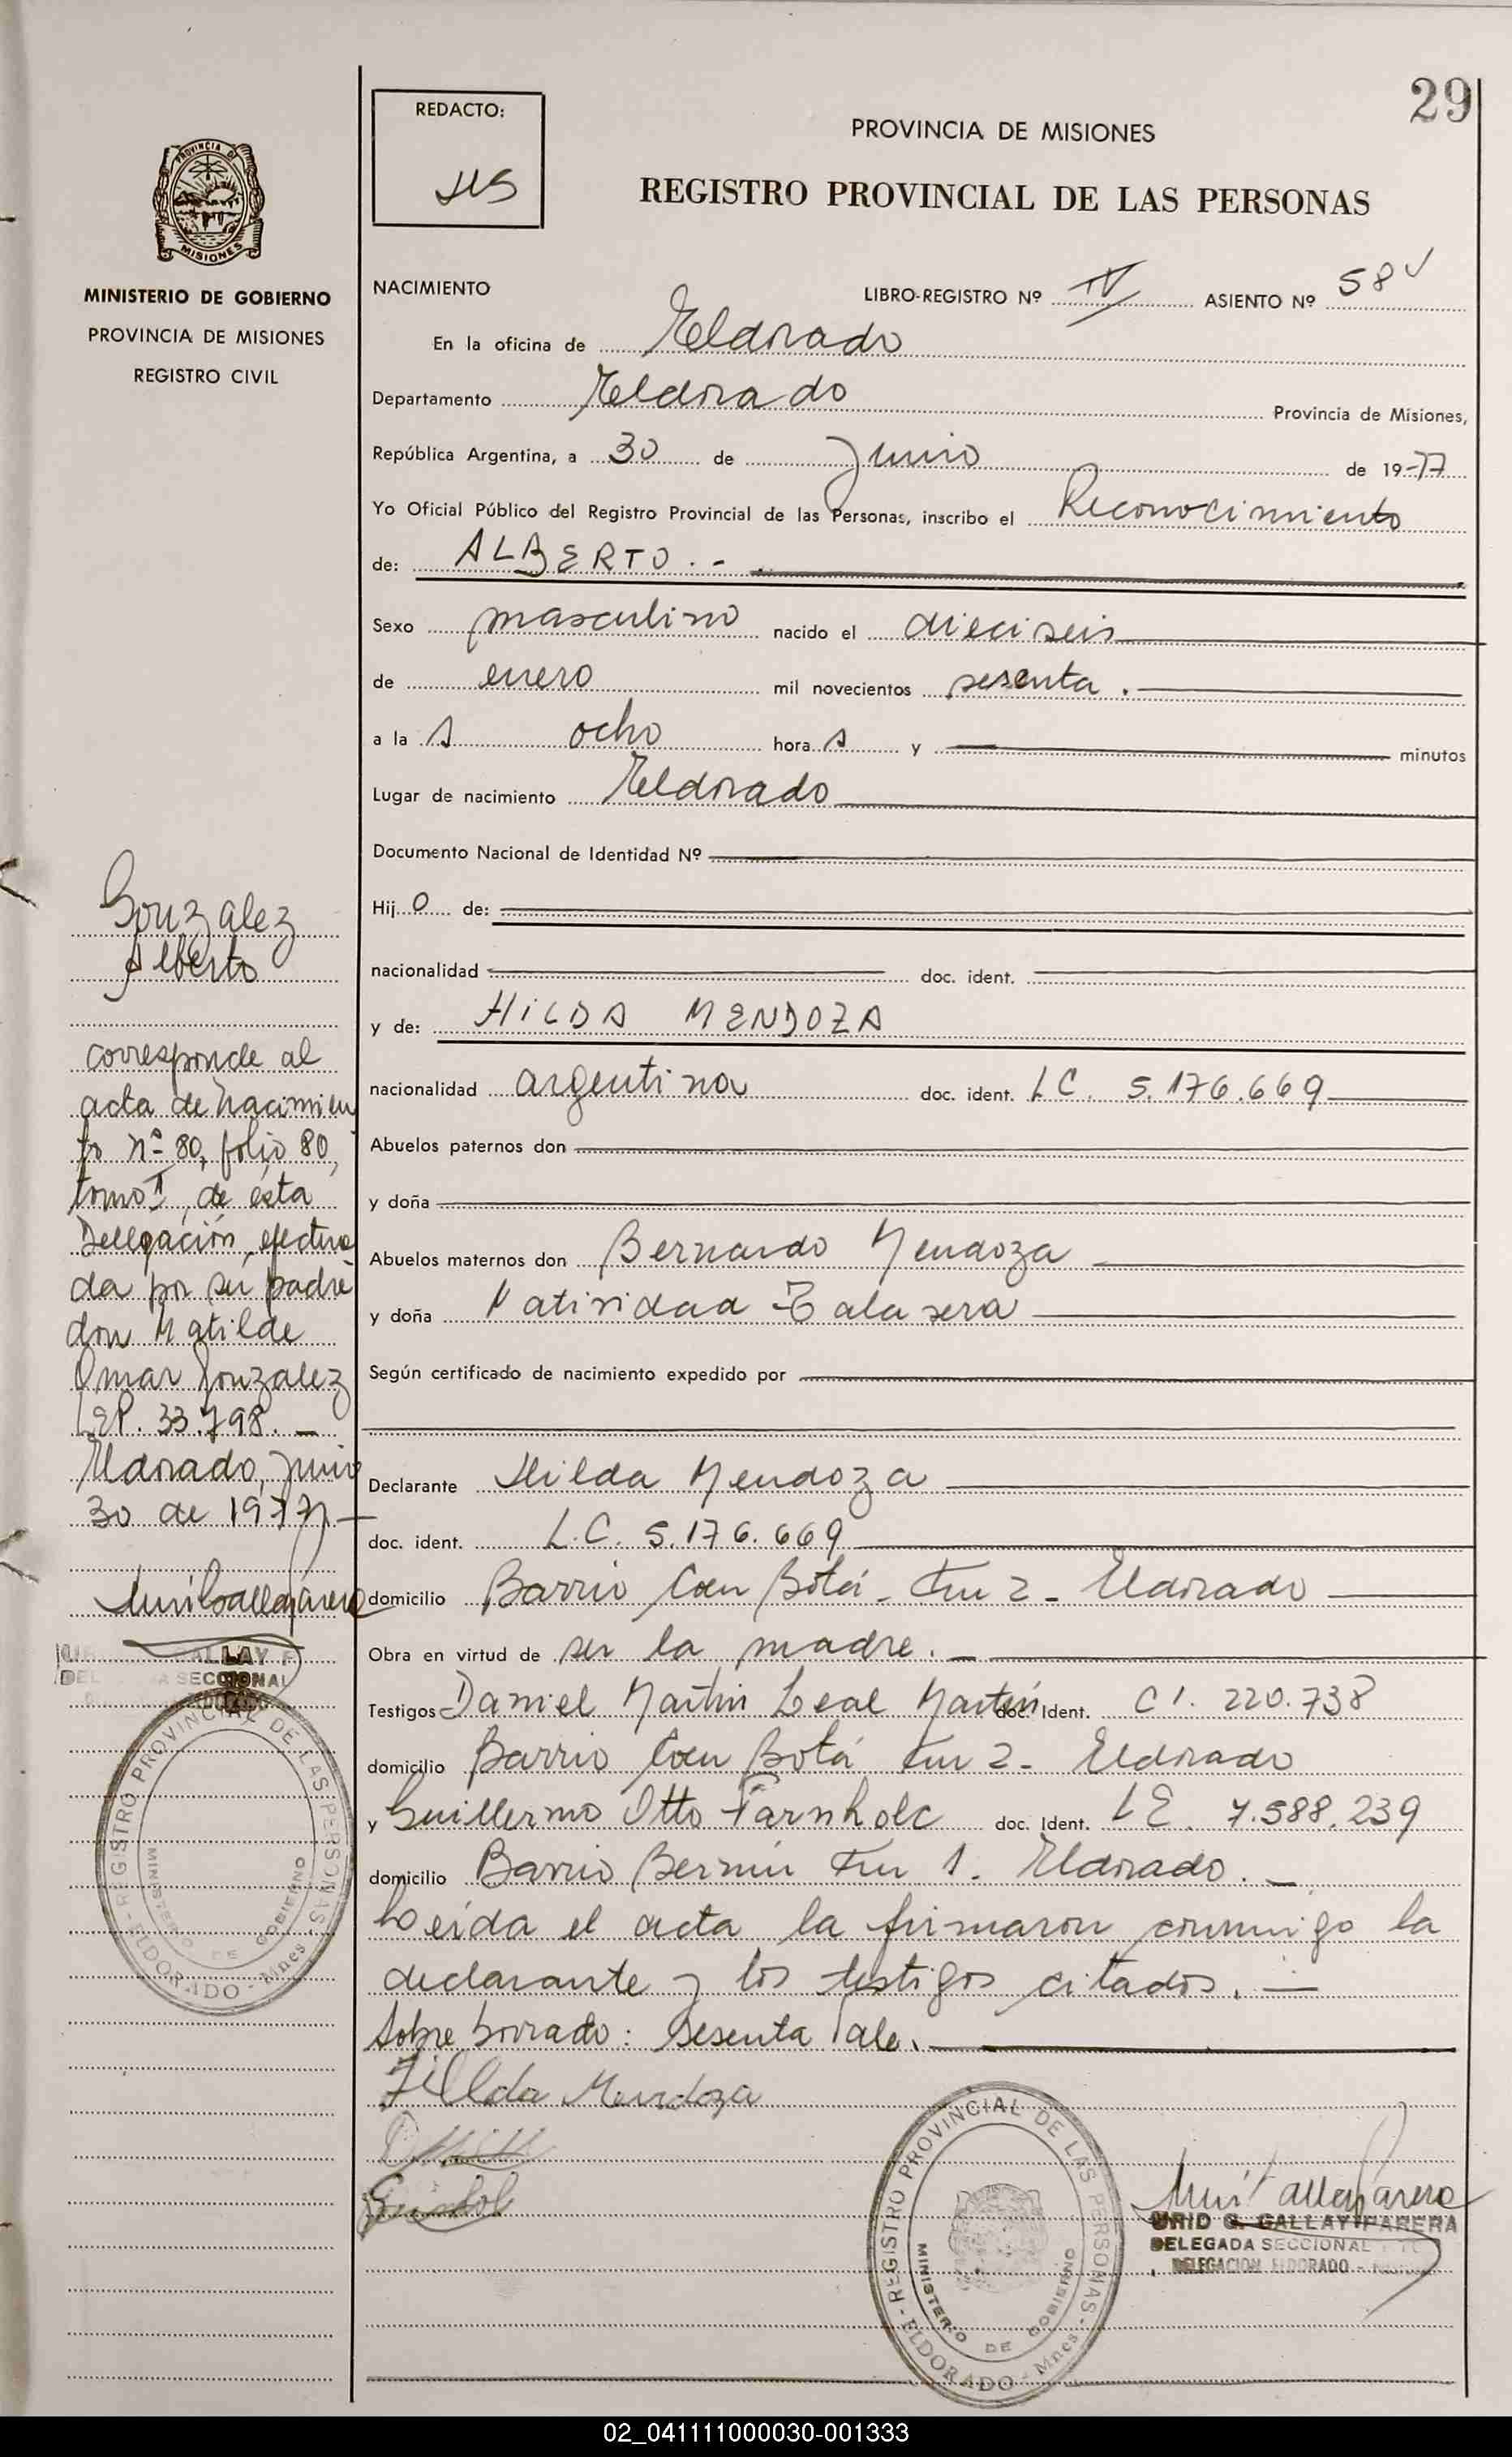 29
REDACTO:
PROVINCIA DE MISIONES
REGISTRO PROVINCIAL DE LAS PERSONAS
PROVINCIA DE
MISIONES
MINISTERIO DE GOBIERNO
PROVINCIA DE MISIONES
REGISTRO CIVIL
NACIMIENTO
LIBRO-REGISTRO Nº IV ASIENTO Nº 58
En la oficina de Eldorado
Departamento Eldorado Provincia de Misiones,
República Argentina, a 30 de Junio de 1977
Yo Oficial Público del Registro Provincial de las Personas, inscribo el Reconocimiento
de: ALBERTO.-
Sexo masculino nacido el dieciseis
de enero mil novecientos sesenta.
a la s ocho hora s y minutos
Lugar de nacimiento Eldorado
Documento Nacional de Identidad Nº
Hij o de:
nacionalidad doc. ident.
y de: HILDA MENDOZA
nacionalidad argentina doc. ident. LC. 5.176.669
Abuelos paternos don
y doña
Abuelos maternos don Bernardo Mendoza
y doña Natividad Talavera
Según certificado de nacimiento expedido por
Declarante Hilda Mendoza
doc. ident. L.C. 5.176.669
domicilio Barrio Botá - Km 2 - Eldorado
Obra en virtud de ser la madre.
Testigos Daniel Martin Leal Martin doc. Ident. CI. 220.738
domicilio Barrio Botá Km 2 - Eldorado
y Guillermo Otto doc. Ident. LE. 7.588.239
domicilio Barrio Km 1. Eldorado.
Leida el acta la firmaron conmigo la
declarante y los testigos citados.
Sobre borrado: Sesenta Vale.
Hilda Mendoza
Gonzalez
Alberto
corresponde al
acta de nacimien
to nº 80, folio 80,
tomo I, de ésta
Delegación, efectua
da por su padre
don Matilde
Omar Gonzalez
LEP. 33.798.
Eldorado, junio
30 de 1977
GALLAY P
SECCIONAL
REGISTRO PROVINCIAL DE LAS PERSONAS
MINISTERIO DE GOBIERNO
ELDORADO - Mnes
REGISTRO PROVINCIAL DE LAS PERSONAS
MINISTERIO DE GOBIERNO
ELDORADO - Mnes
URID G. GALLAY PARERA
DELEGADA SECCIONAL
DELEGACION ELDORADO -
02_041111000030-001333